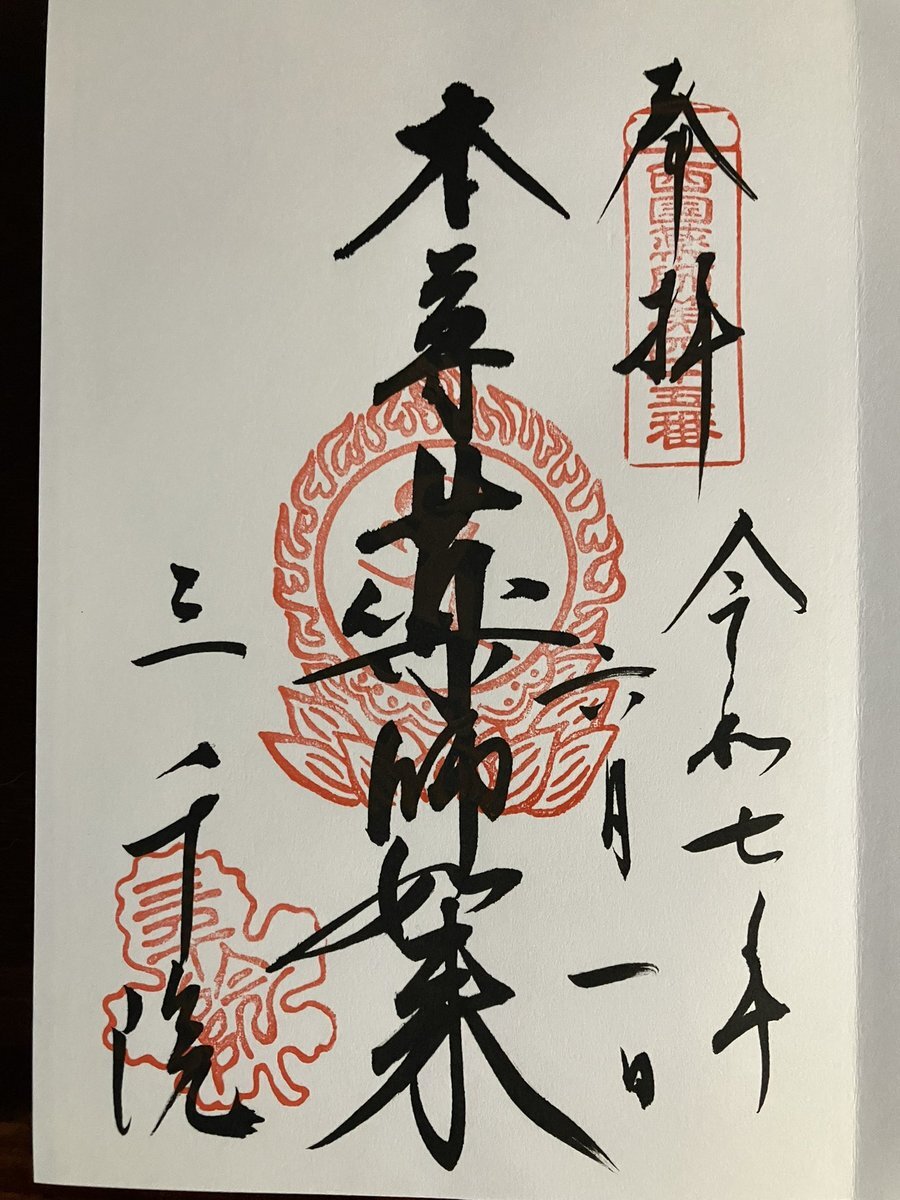 奉拝
西国薬師第四十五番
令和七年
六月一日
本尊薬師如来
三千院